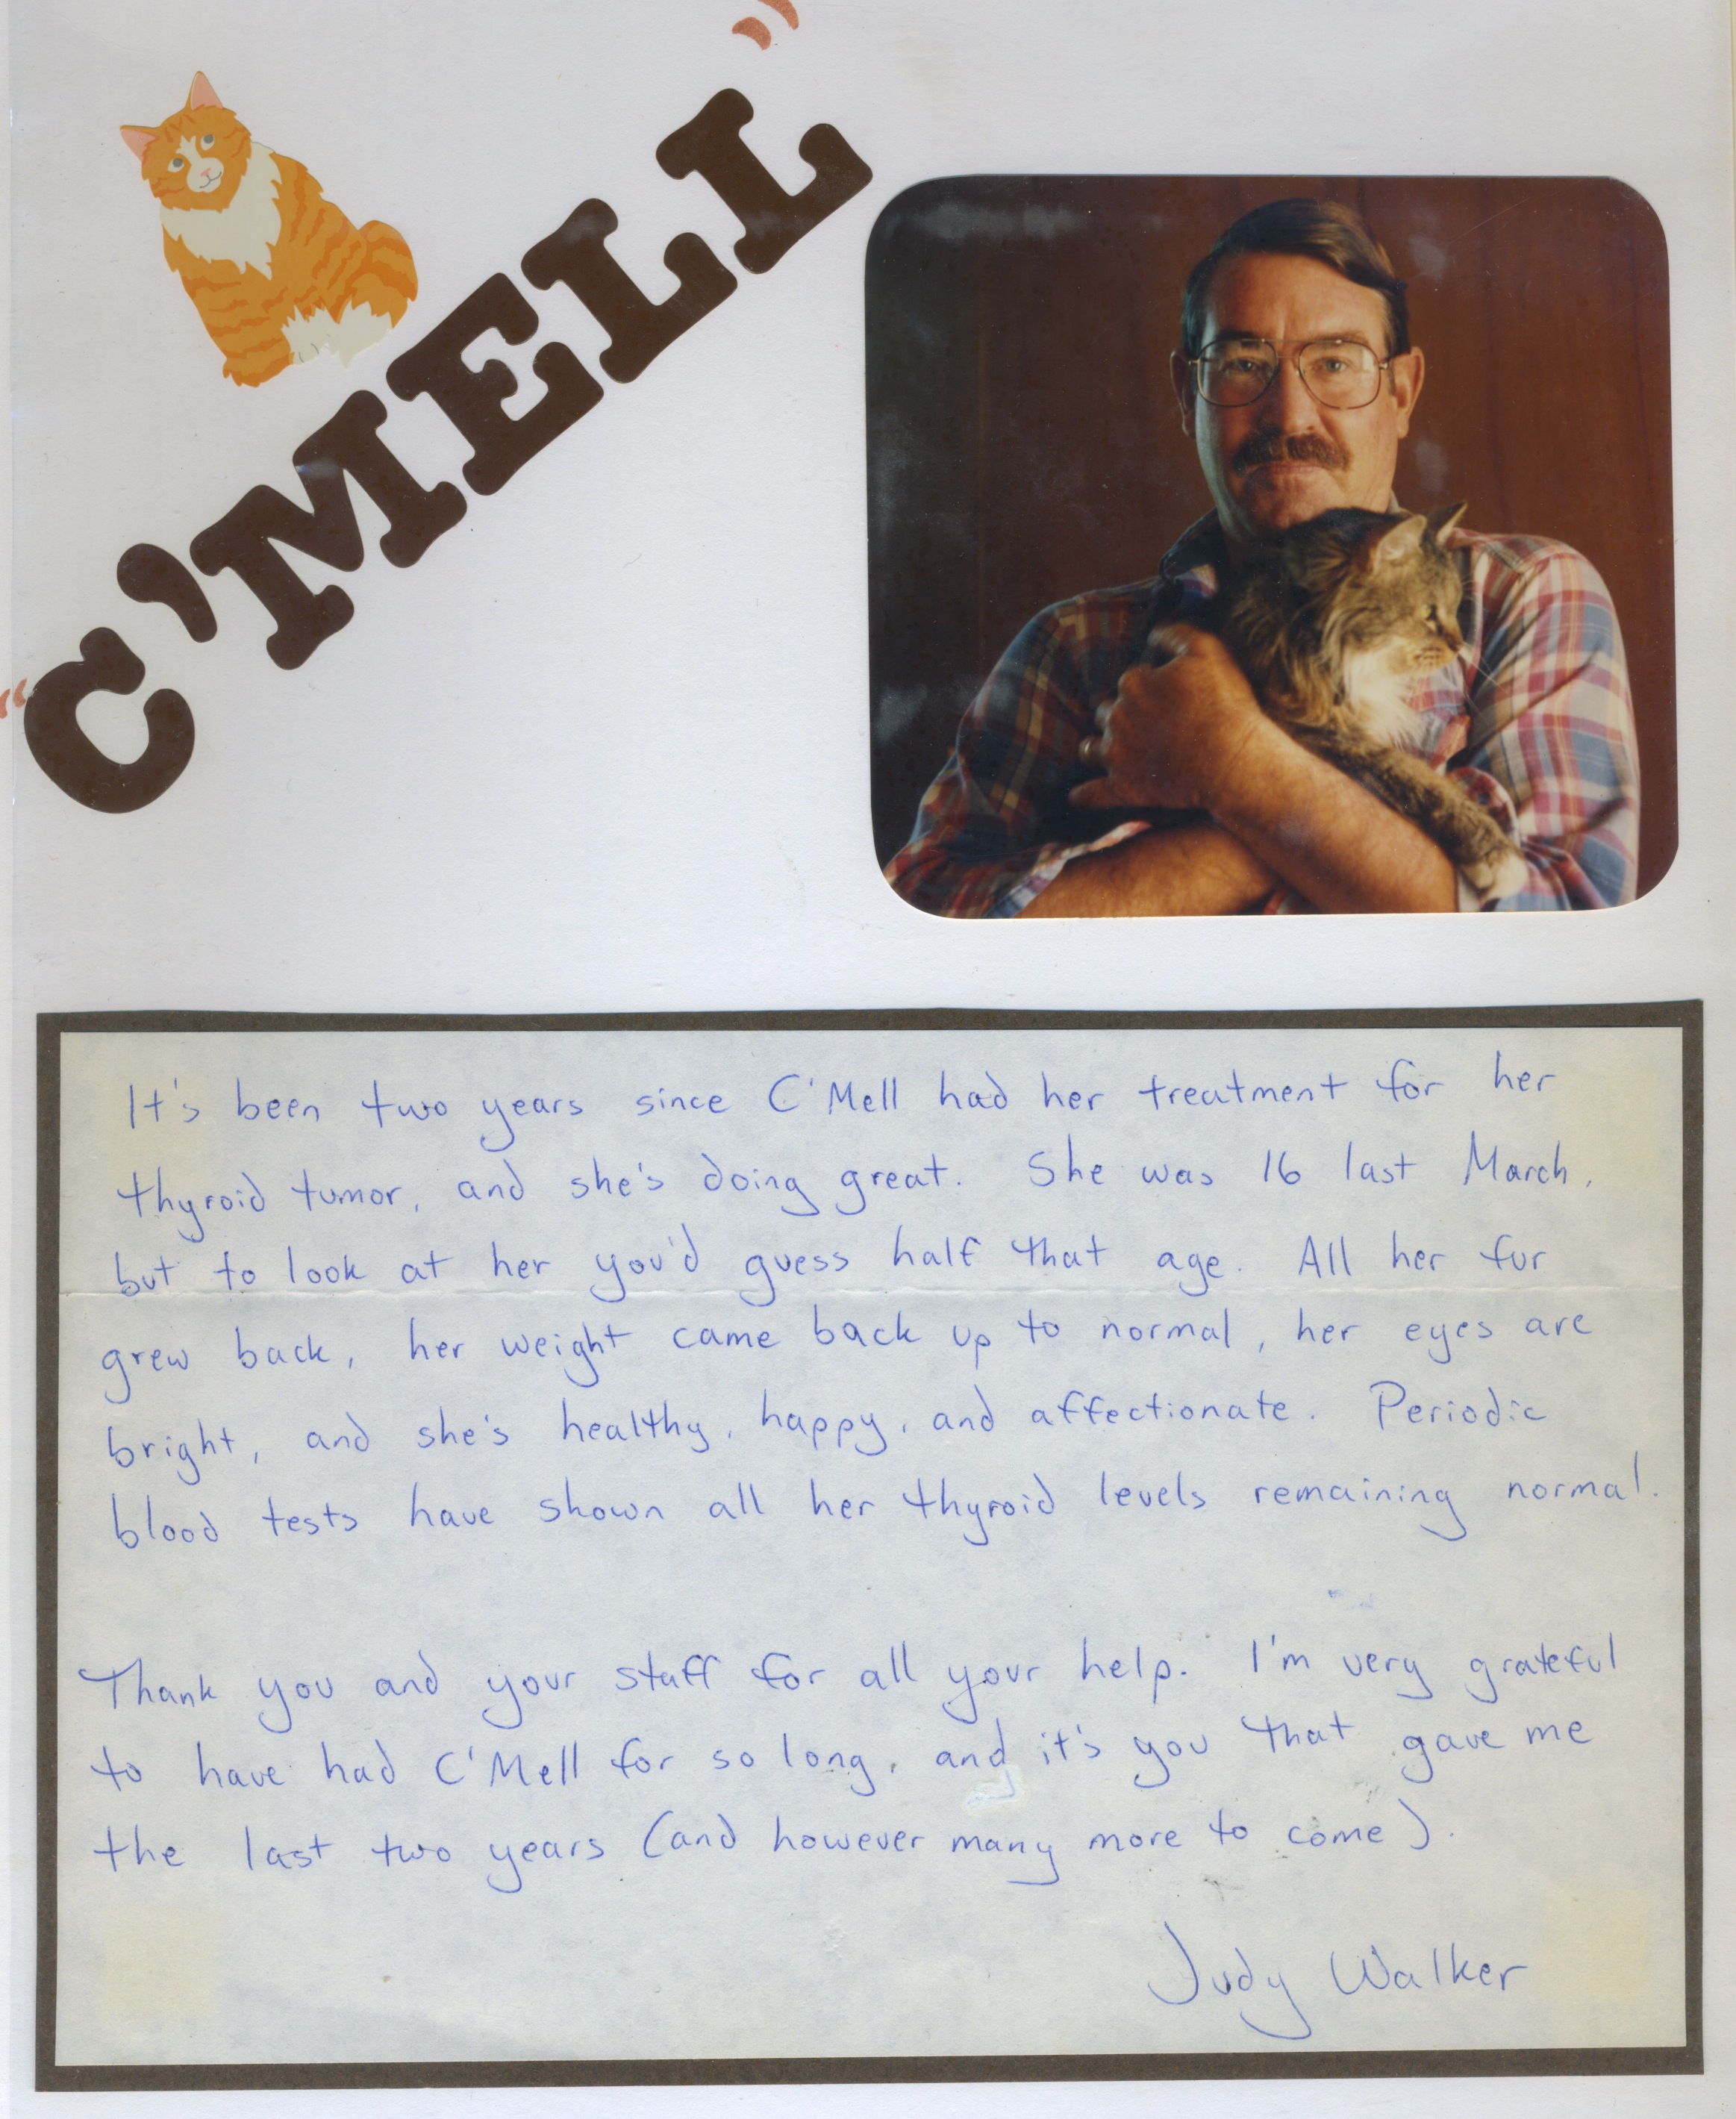 "C'MELL"
It's been two years since C'Mell had her treatment for her
thyroid tumor, and she's doing great. She was 16 last March,
but to look at her you'd guess half that age. All her fur
grew back, her weight came back up to normal, her eyes are
bright, and she's healthy, happy, and affectionate. Periodic
blood tests have shown all her thyroid levels remaining normal.
Thank you and your staff for all your help. I'm very grateful
to have had C'Mell for so long, and it's you that gave me
the last two years (and however many more to come).
Judy Walker